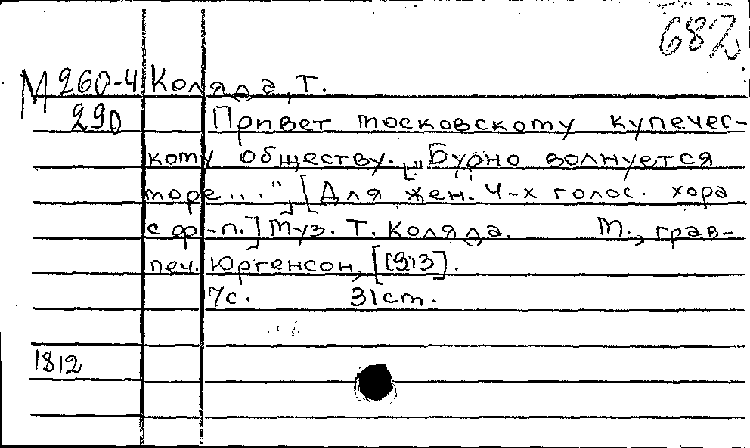 682
М 260-4 Коляда, Т.
290 Привет московскому купечес-
кому обществу. ["Бурно волнуется
море..."] [Для жен. 4-х голос. хора
с ф-п.] Муз. Т. Коляда. М., грав-
печ. Юргенсон, [1913].
7с. 31см.
1812